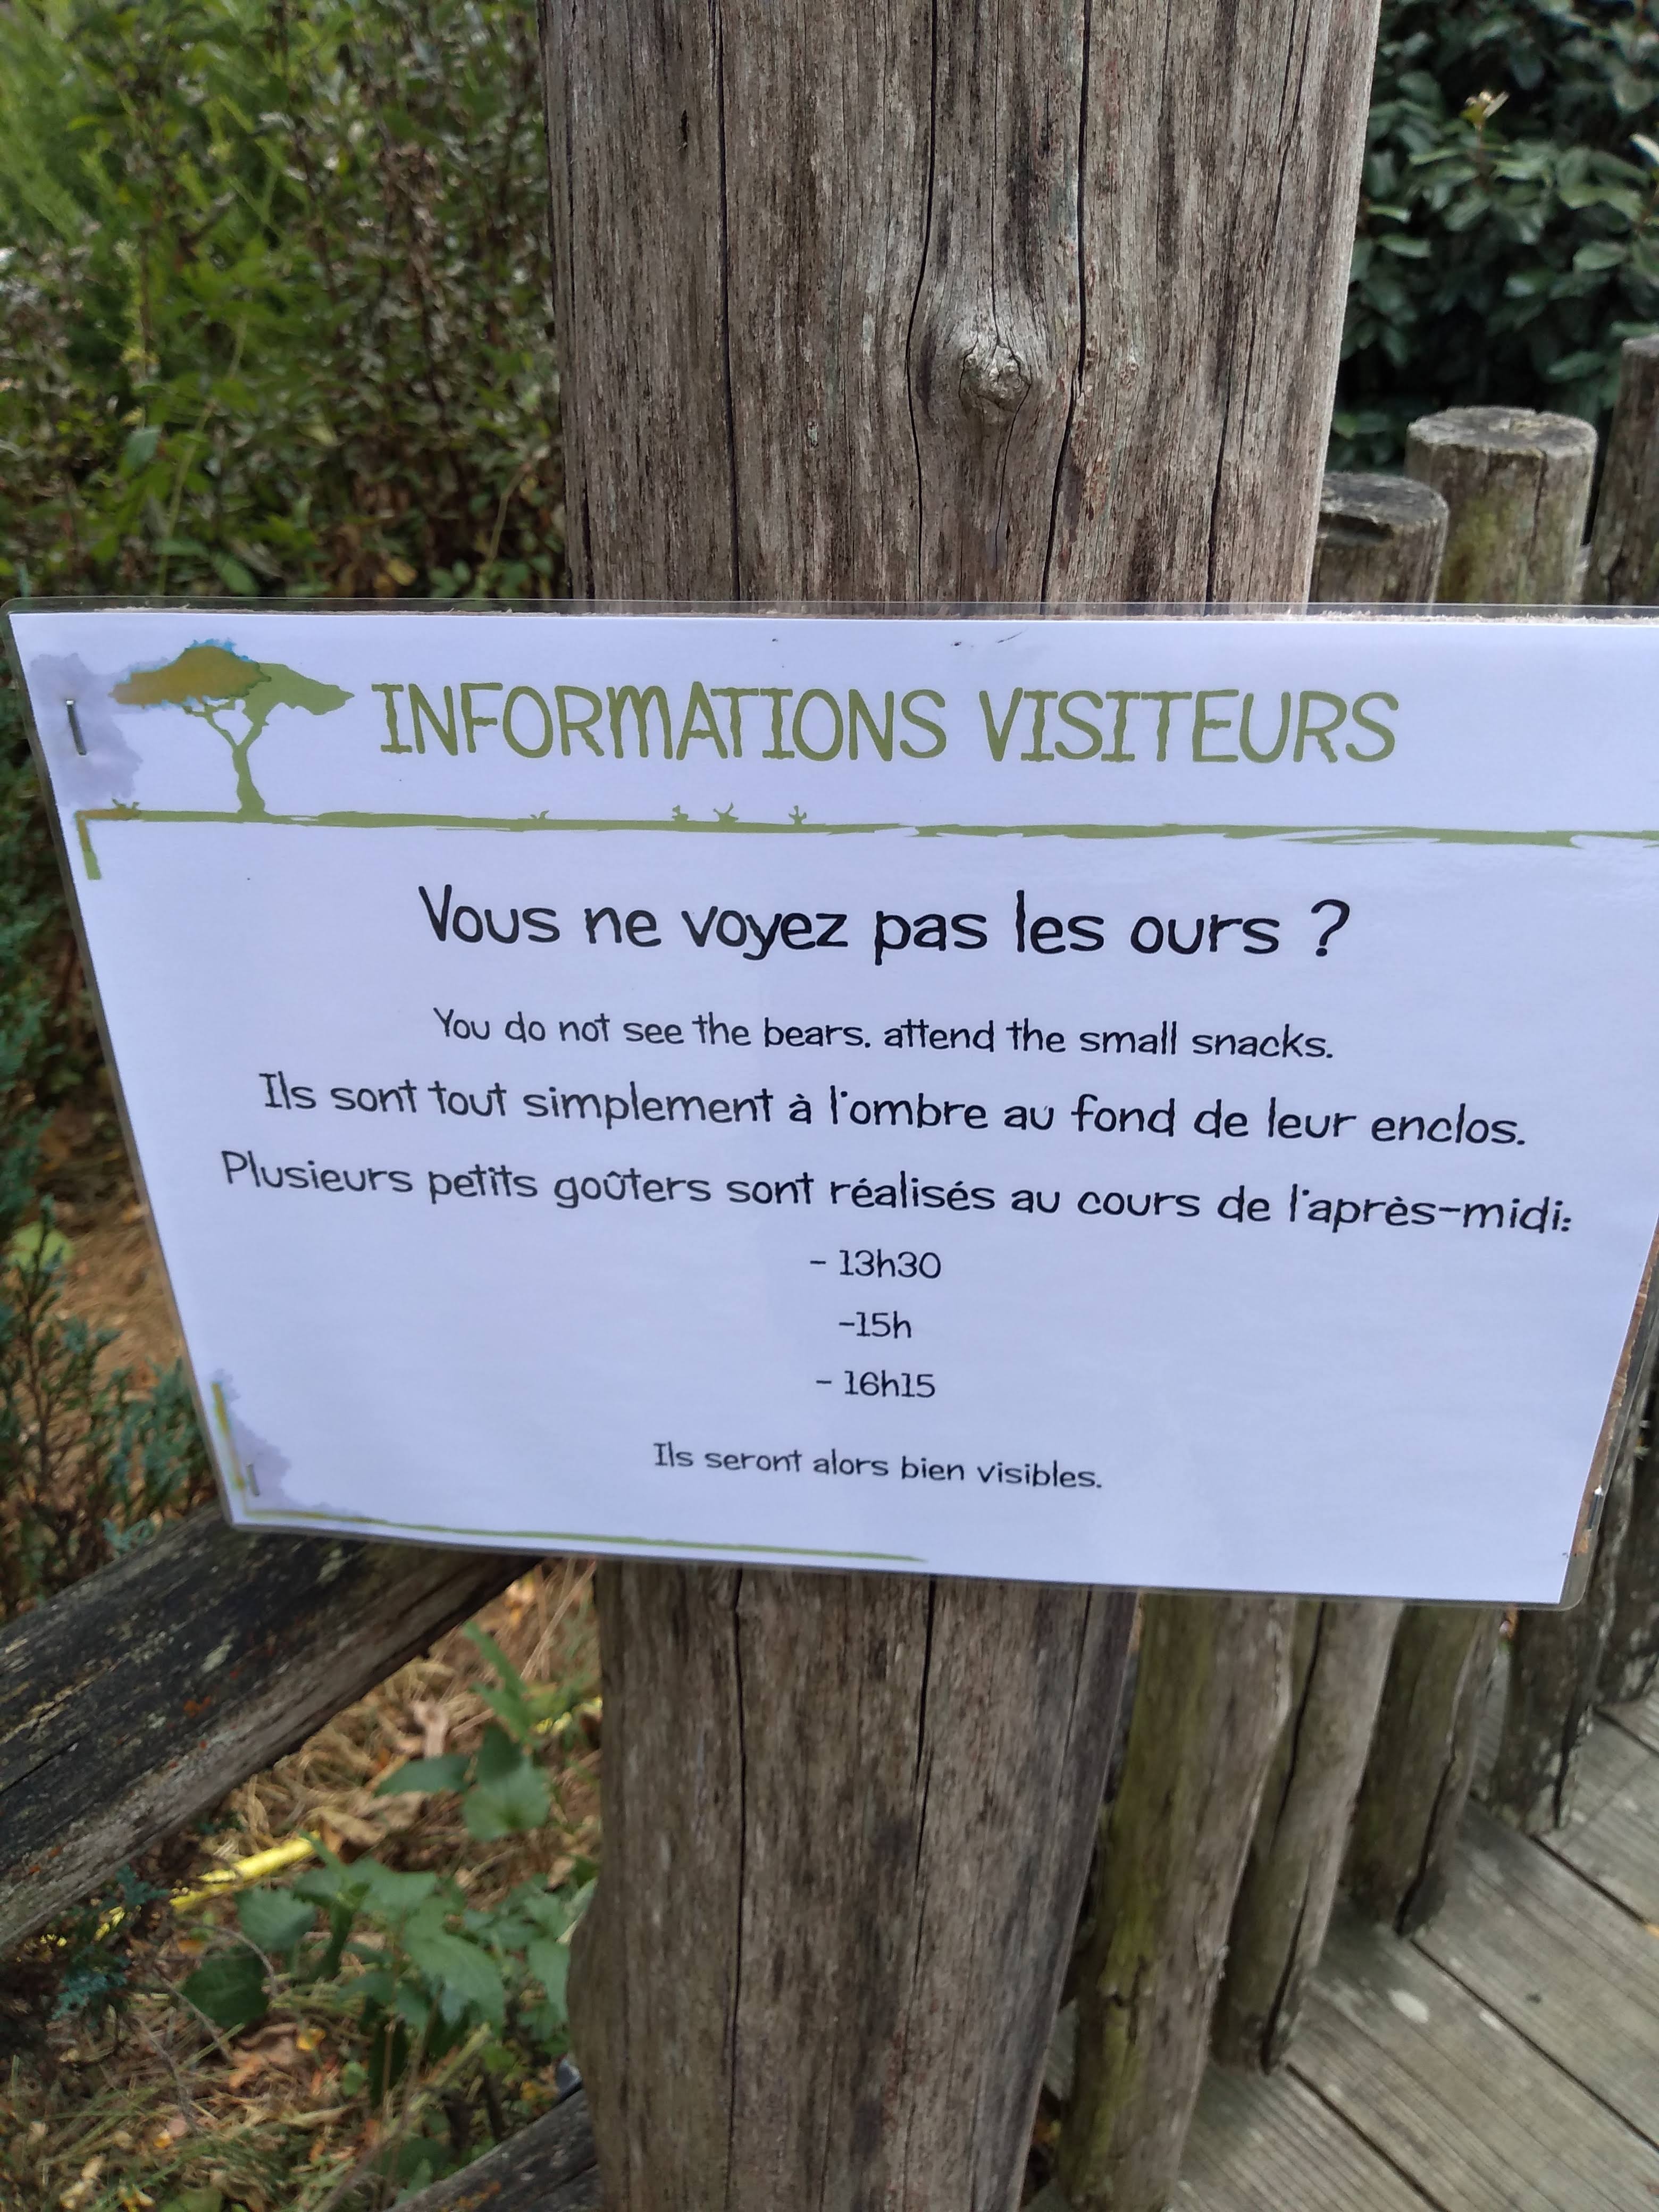 INFORMATIONS VISITEURS
Vous ne voyez pas les ours ?
You do not see the bears. attend the small snacks.
Ils sont tout simplement à l'ombre au fond de leur enclos.
Plusieurs petits goûters sont réalisés au cours de l'après-midi:
- 13h30
-15h
- 16h15
Ils seront alors bien visibles.